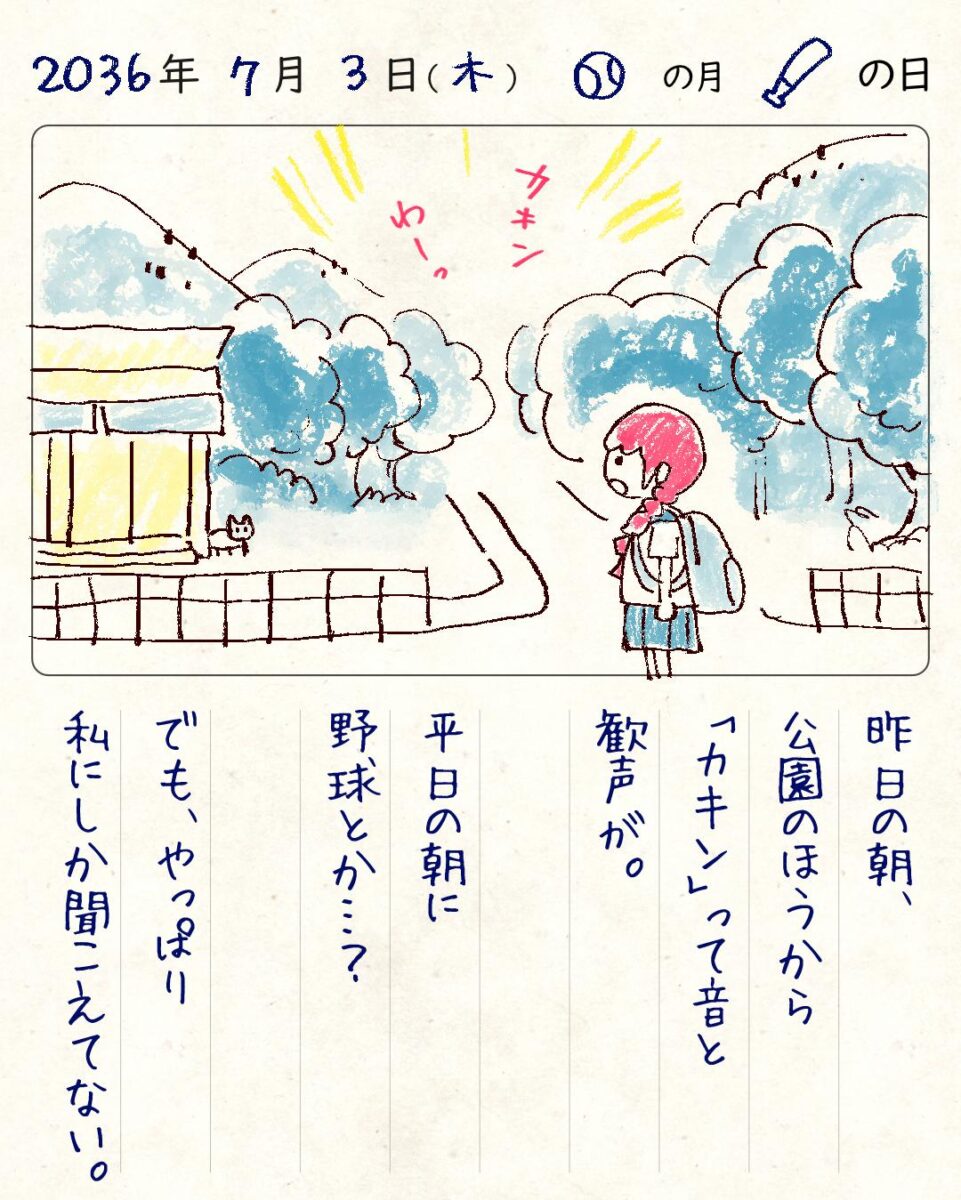 2036年 7月 3日(木) の月 の日
カキン
わーっ
昨日の朝、
公園のほうから
「カキン」って音と
歓声が。
平日の朝に
野球とか…?
でも、やっぱり
私にしか聞こえてない。